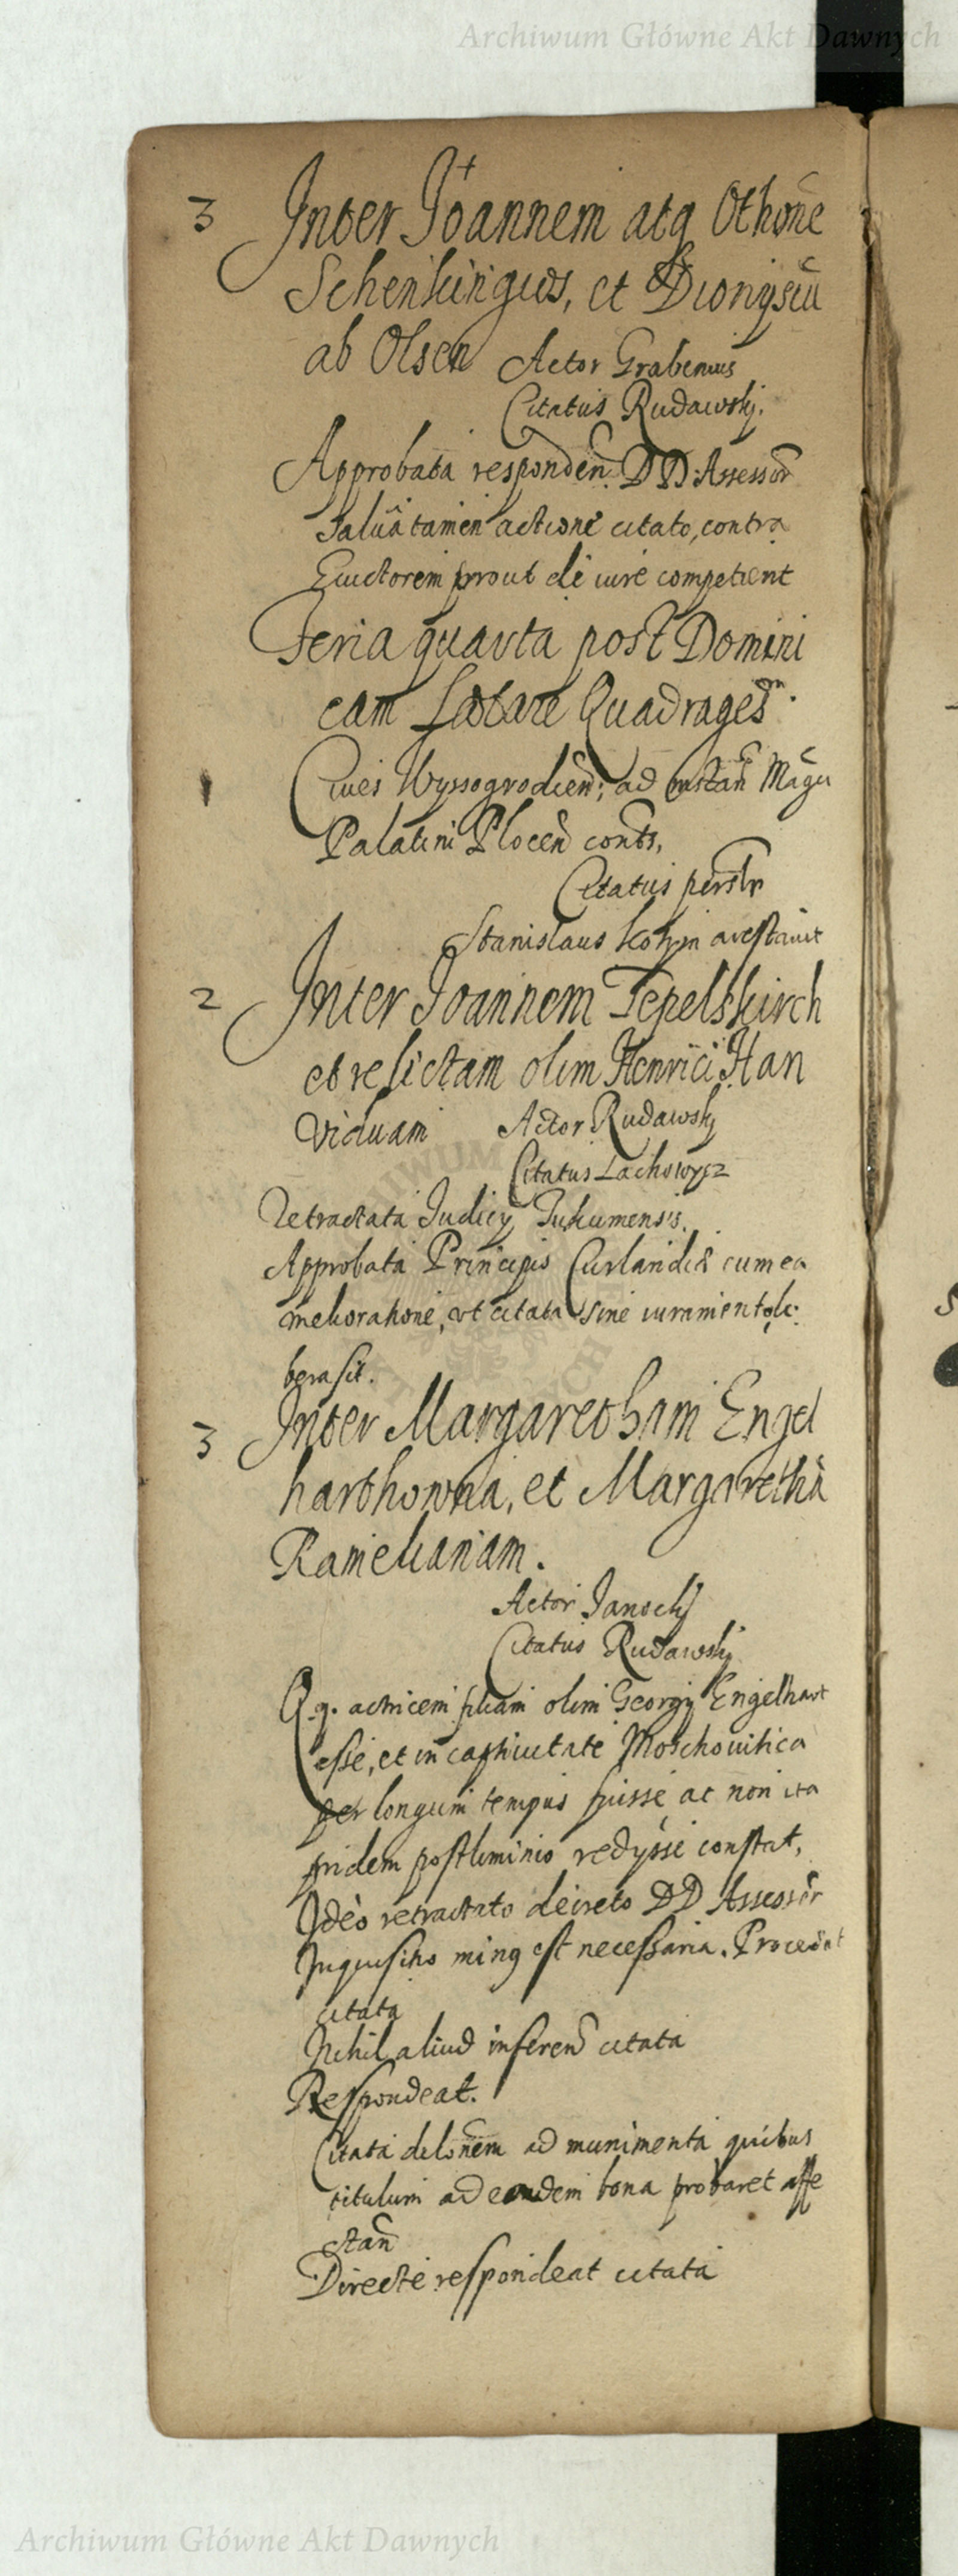 Archiwum Główne Akt Dawnych
3 Inter Joannem atq Othone
Schenkingios, et Dionysiu
ab Olsen Actor Grabenius
Citatus Rudawskj.
Approbata responden DD: Assessor
salua tamen actione citato, contra
Euictorem prout de iure competient
Feria quarta post Domini
cam Lætare Quadrages
1 Ciues Wyssogrodien: ad instan Magci
Palatini Plocen conts,
Citatus perstr
Stanislaus arestauit
2 Inter Joannem Tepelskirch
et relictam olim Henrici Han
Viduam Actor Rudawskj
Citatus Lachowycz
Retractata Judicij Tukumensis.
Approbata Principis Curlandiæ cum ea
melioratione, ut citata sine iuramento li:
bera sit.
3 Inter Margaretham Engel
harthowna, et Margaretha
Ramelianam.
Actor Janockj
Citatus Rudawskj
Qq. actricem filiam olim Georgij Engelhart
esse, et in captiuitate Moschouitica
per longum tempus fuisse ac non ita
pridem postliminio redysse constat,
Ideo retractato decreto DD Assessor
Inquisitio minq est necessaria. Procedat
citata
Nihil aliud inferen citata
Respondeat.
Citata delonem ad munimenta quibus
titulum ad eadem bona probaret affe
ctan
Directe respondeat citata
Archiwum Główne Akt Dawnych